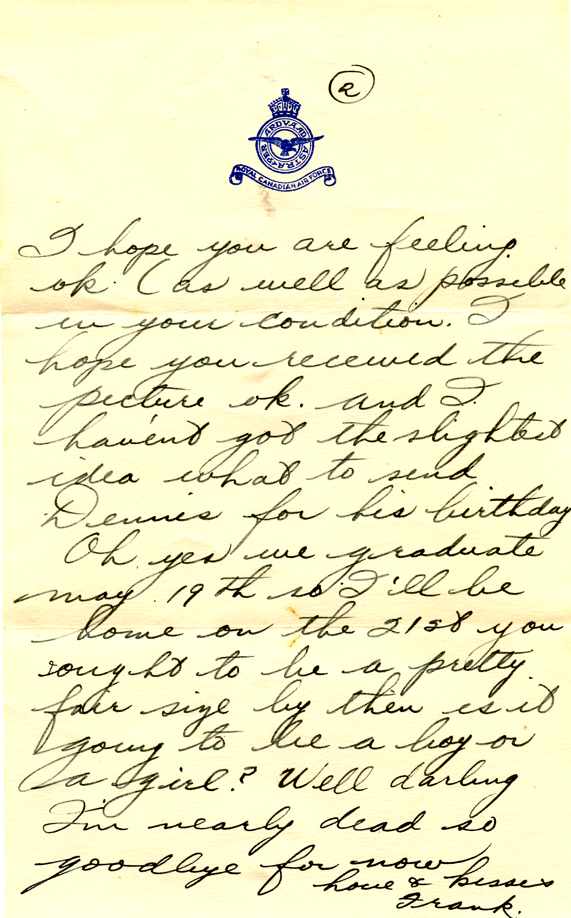 2
PER ARDVA AD ASTRA
ROYAL CANADIAN AIR FORCE
I hope you are feeling
ok. (as well as possible
in your condition. I
hope you received the
picture ok. and I
haven't got the slightest
idea what to send
Dennis for his birthday
Oh yes we graduate
may. 19th so I'll be
home on the 21st you
ought to be a pretty
fair size by then is it
going to be a boy or
a girl? Well darling
I'm nearly dead so
goodbye for now
love & kisses
Frank.